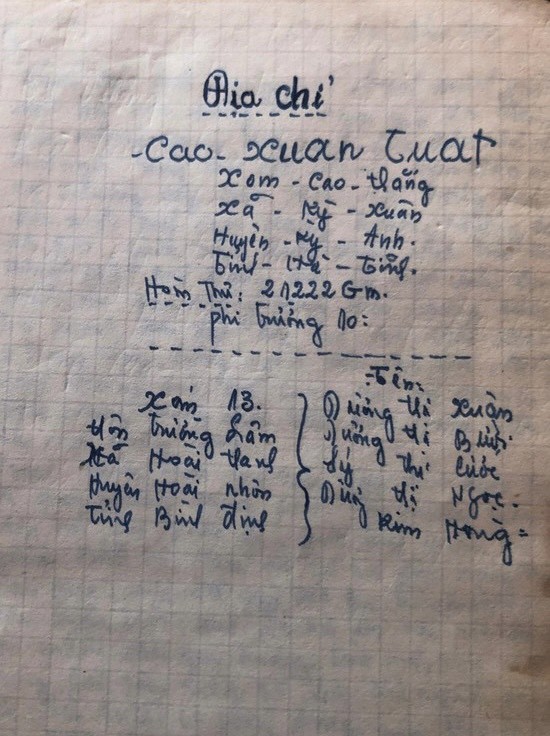 Địa chỉ
-Cao- Xuan Tuat
Xom - Cao - thắng
Xã - Kỳ - Xuân
Huyện - Kỳ - Anh.
Tỉnh - Hà - Tĩnh.
Hòm Thư: 21222 Gm.
phi trường 10:
Tên:
Xóm 13.
thôn Trường Lâm
Xã Hoài thanh
Huyện Hoài nhơn
Tỉnh Bình định
thị Xuân
thị
thị Cước
thị Ngọc:
Kim Hoàng =